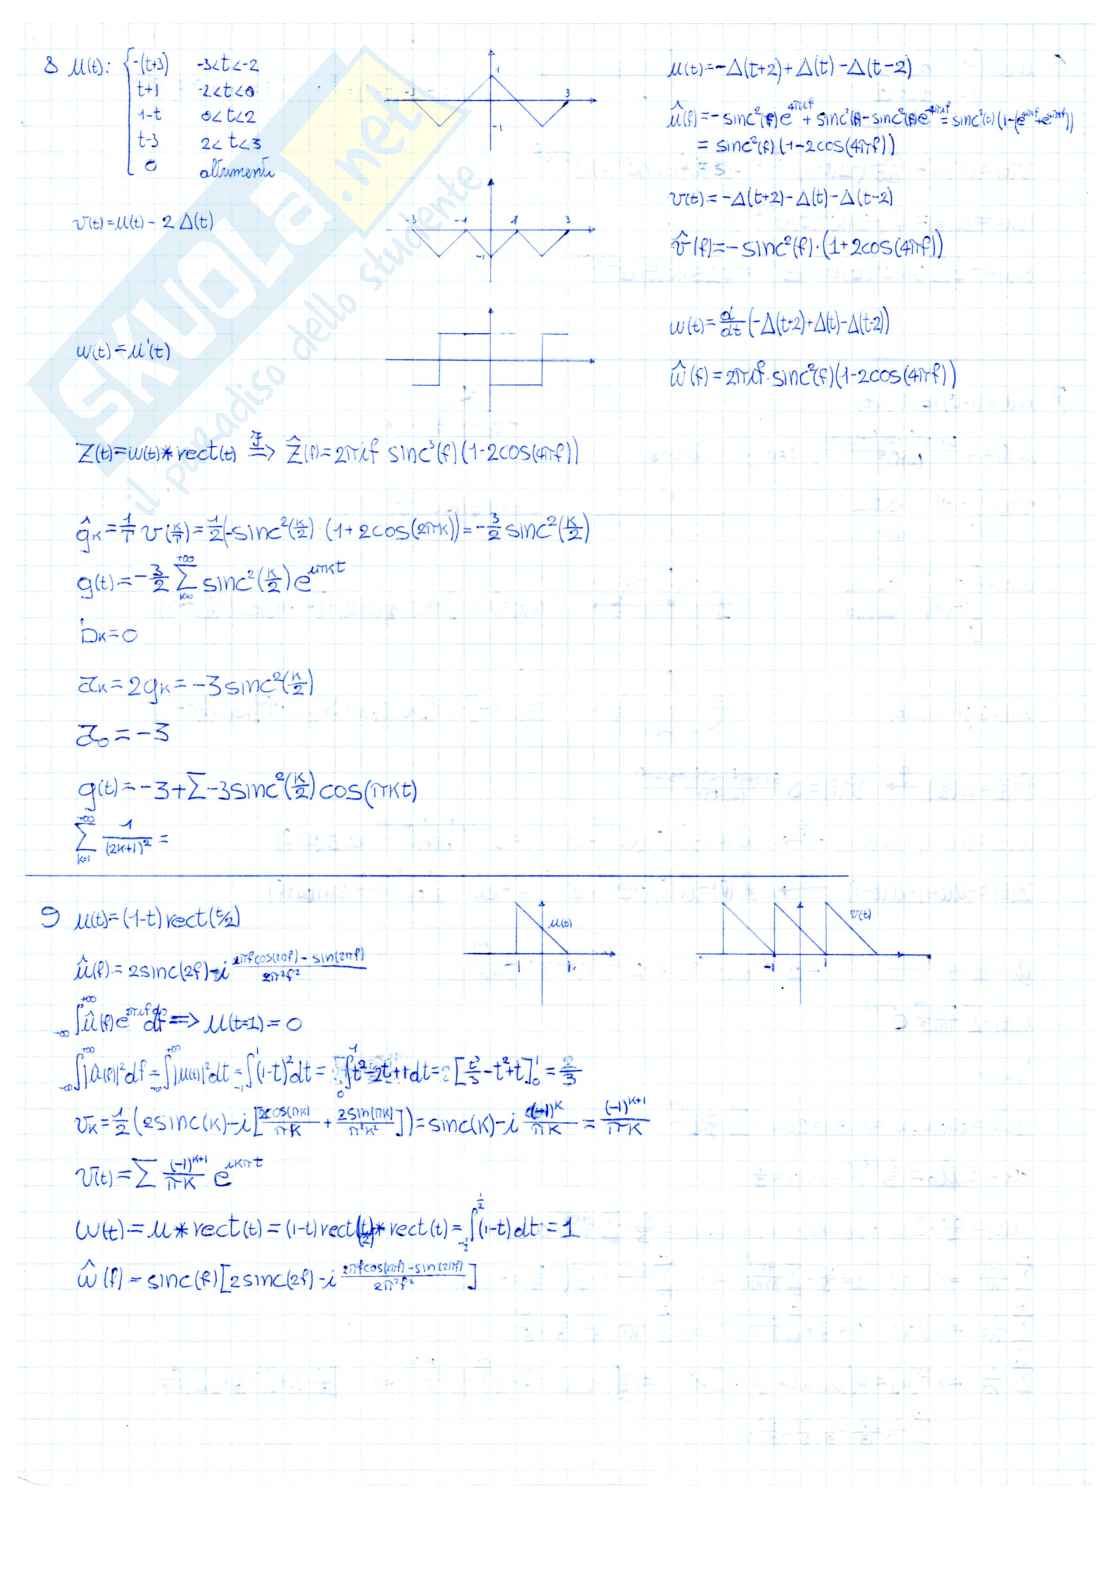 8 u(t): { -(t+3) -3<t<-2
t+1 -2<t<0
1-t 0<t<2
t-3 2<t<3
0 altrimenti
1
-3 3
-1
u(t)=-Δ(t+2)+Δ(t)-Δ(t-2)
û(f)=-sinc²(f)e^{4πif}+sinc²(f)-sinc²(f)e^{-4πif}=sinc²(f)(1-(e^{4πif}+e^{-4πif}))
= sinc²(f)(1-2cos(4πf))
= s
v(t)=u(t)-2Δ(t)
-3 -1 1 3
-1
v(t)=-Δ(t+2)-Δ(t)-Δ(t-2)
v̂(f)=-sinc²(f)·(1+2cos(4πf))
w(t)=u'(t)
w(t)=d/dt(-Δ(t+2)+Δ(t)-Δ(t-2))
ŵ(f)=2πif·sinc²(f)(1-2cos(4πf))
z(t)=w(t)*rect(t) ⇒ ẑ(f)=2πif sinc³(f)(1-2cos(4πf))
ĝ_k=1/T v(k/T)=1/2(-sinc²(k/2)·(1+2cos(2πk))=-3/2 sinc²(k/2)
g(t)=-3/2 Σ sinc²(k/2) e^{iπkt}
b_k=0
a_k=2g_k=-3sinc²(k/2)
a_0=-3
g(t)=-3+Σ-3sinc²(k/2)cos(πkt)
Σ 1/(2k+1)² =
9 u(t)=(1-t)rect(t/2)
u(t)
-1 1
v(t)
-1 1
û(f)=2sinc(2f)-i (2πfcos(2πf)-sin(2πf))/(2π²f²)
∫_{-∞}^{+∞} û(f)e^{2πif} df ⇒ u(t=1)=0
∫_{-∞}^{+∞}|û(f)|²df=∫_{-∞}^{+∞}|u(t)|²dt=∫_{-1}^{1}(1-t)²dt= ∫_0^1 t²-2t+1dt=2[t³/3-t²+t]_0^1=2/3
v_k=1/2(2sinc(k)-i[2cos(πk)/πk+2sin(πk)/π²k²])=sinc(k)-i (-1)^k/πk=(-1)^{k+1}/πk
v(t)=Σ (-1)^{k+1}/πk e^{ikπt}
w(t)=u*rect(t)=(1-t)rect(t/2)*rect(t)=∫_{-1/2}^{1/2}(1-t)dt=1
ŵ(f)=sinc(f)[2sinc(2f)-i (2πfcos(2πf)-sin(2πf))/(2π²f²)]
SKUOLA.net
il paradiso dello studente